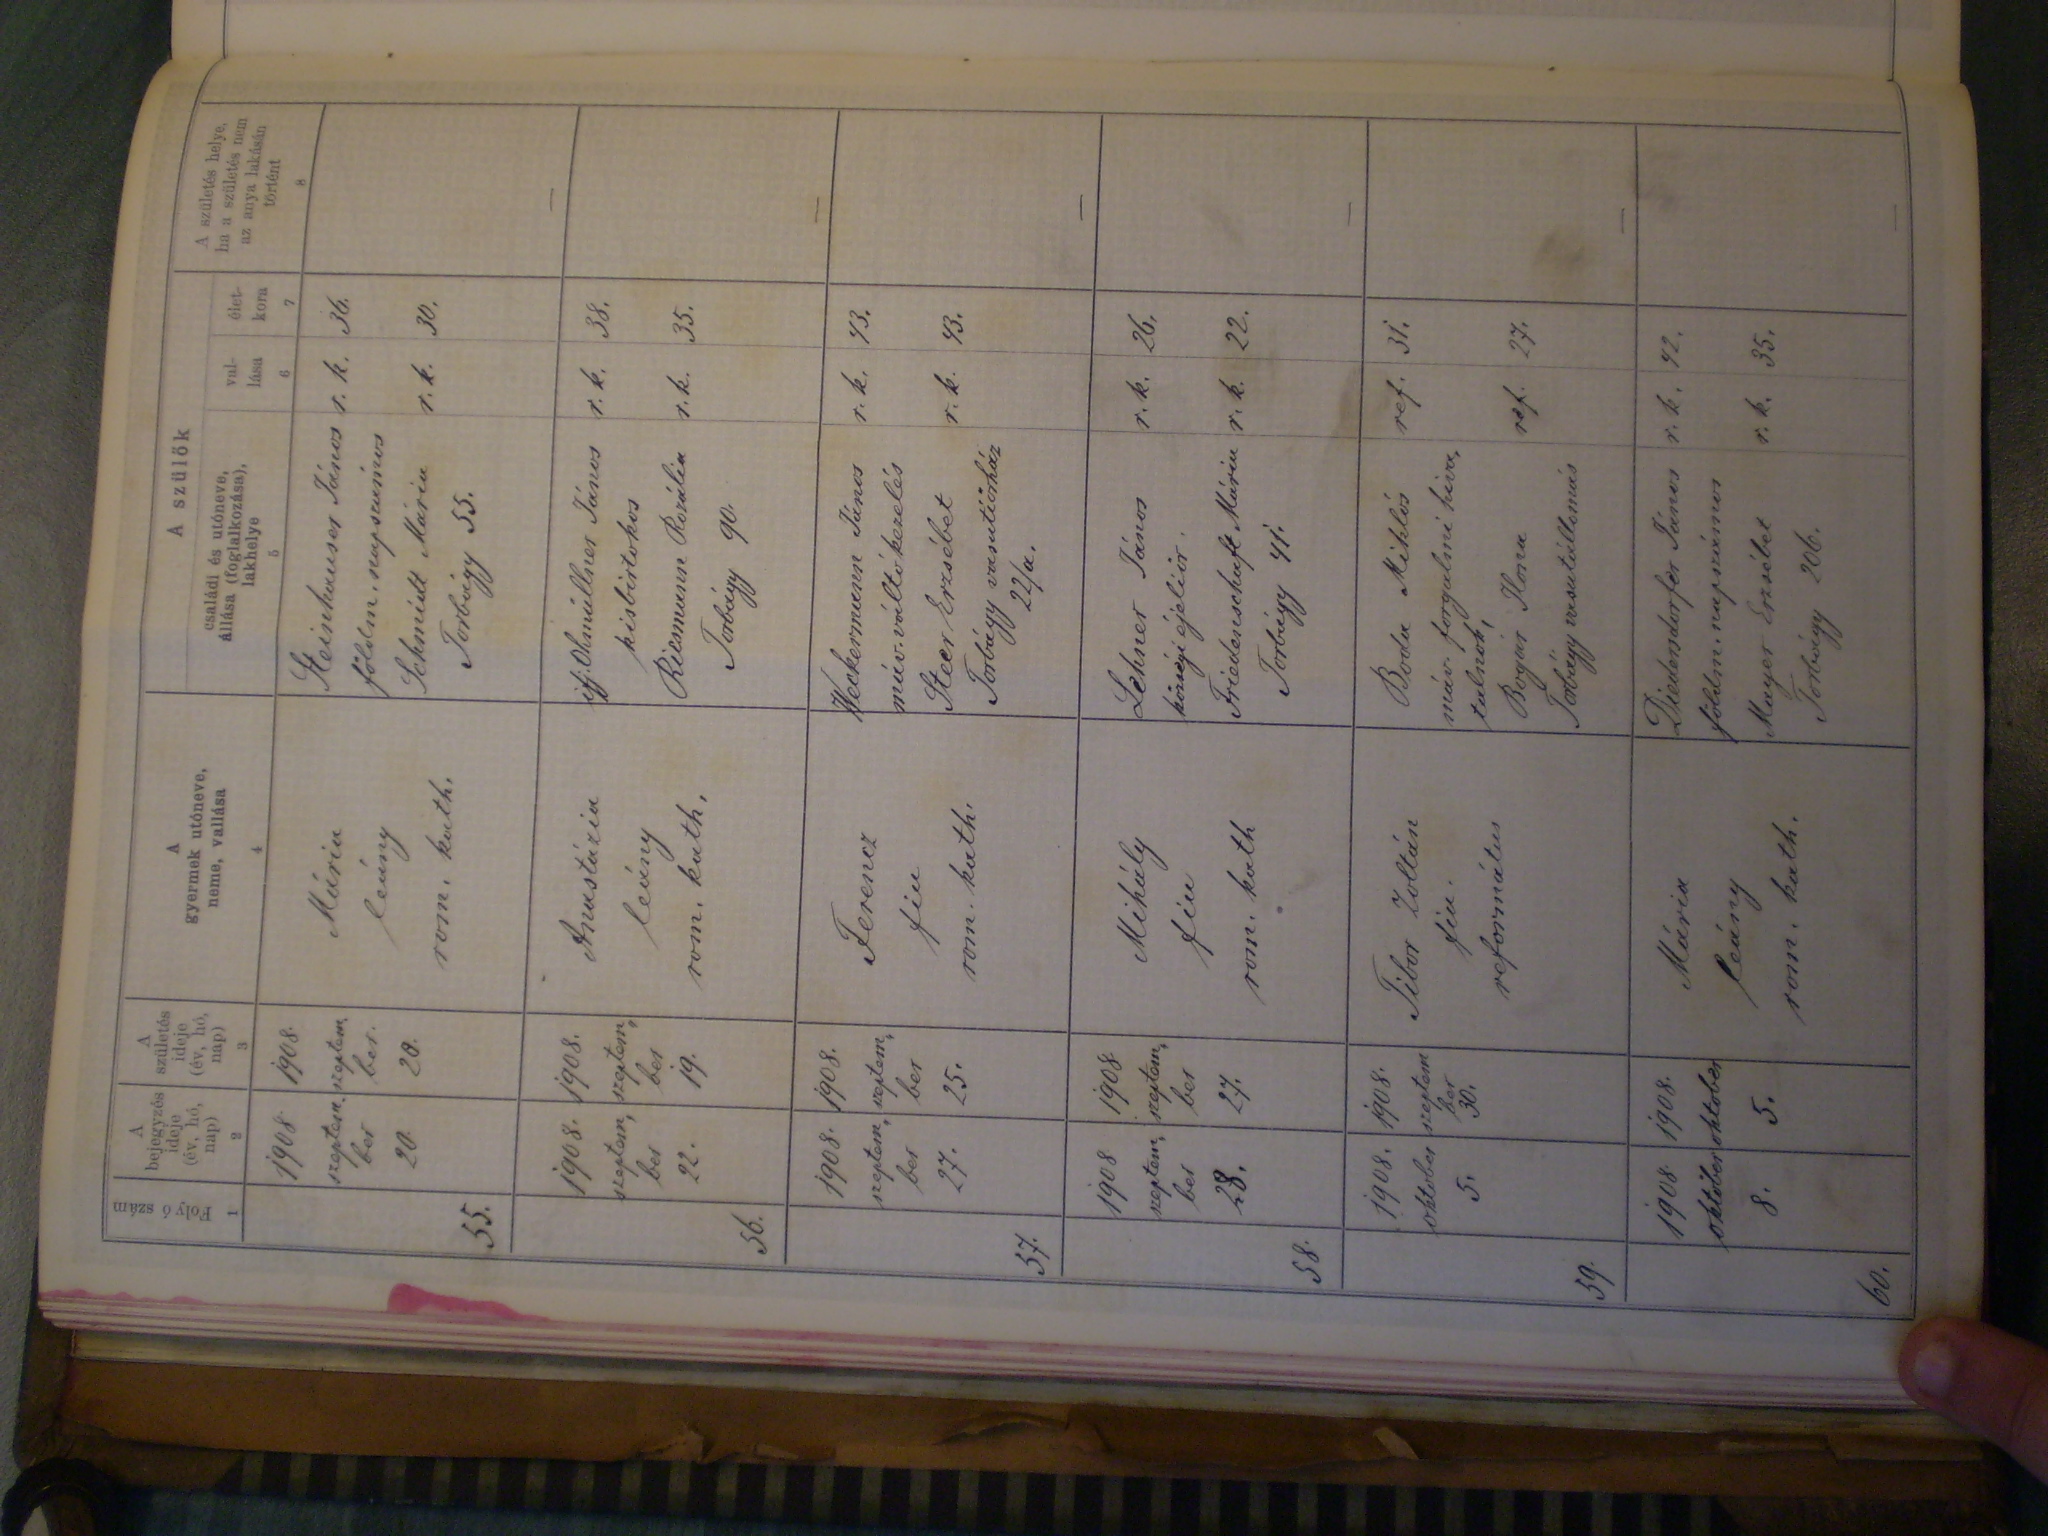 Folyó szám
1
A
bejegyzés
ideje
(év, hó,
nap)
2
A
születés
ideje
(év, hó,
nap)
3
A
gyermek utóneve,
neme, vallása
4
A szülők
családi és utóneve,
állása (foglalkozása),
lakhelye
5
val-
lása
6
élet-
kora
7
A születés helye,
ha a születés nem
az anya lakásán
történt
8
55.
1908.
szeptem.
ber
20.
1908.
szeptem,
ber.
20.
Mária
leány
rom. kath.
Steinhauser János r. k. 36.
földm. napszámos
Schmidt Mária r. k. 30.
Torbágy 55.
—
56.
1908.
szeptem,
ber
22.
1908.
szeptem,
ber
19.
Anastázia
leány
rom. kath.
ifj. Ohmüllner János r. k. 38.
kisbirtokos
Riesmann Rozália r. k. 35.
Torbágy 90.
—
57.
1908.
szeptem,
ber
27.
1908.
szeptem,
ber
25.
Ferencz
fiu
rom. kath.
Weckermann János r. k. 43.
máv. váltókezelés
Steer Erzsébet r. k. 43.
Torbágy vasutiőrház
22/a.
—
58.
1908
szeptem,
ber
28.
1908
szeptem,
ber
27.
Mihály
fiu
rom. kath
Lehner János r. k. 26.
községi éjeliőr.
Friedenschaft Mária r. k. 22.
Torbágy 41.
—
59.
1908.
október
5.
1908.
szeptem
ber
30.
Tibor Zoltán
fiu.
református
Boda Miklós ref. 31.
máv. forgalmi hiva,
talnok,
Bogár Ilona ref. 27.
Torbágy vasutiállomás
—
60.
1908
október
8.
1908.
október
5.
Mária
leány
rom. kath.
Diedersdorfer János r. k. 42.
földm. napszámos
Mayer Erzsébet r. k. 35.
Torbágy 206.
—